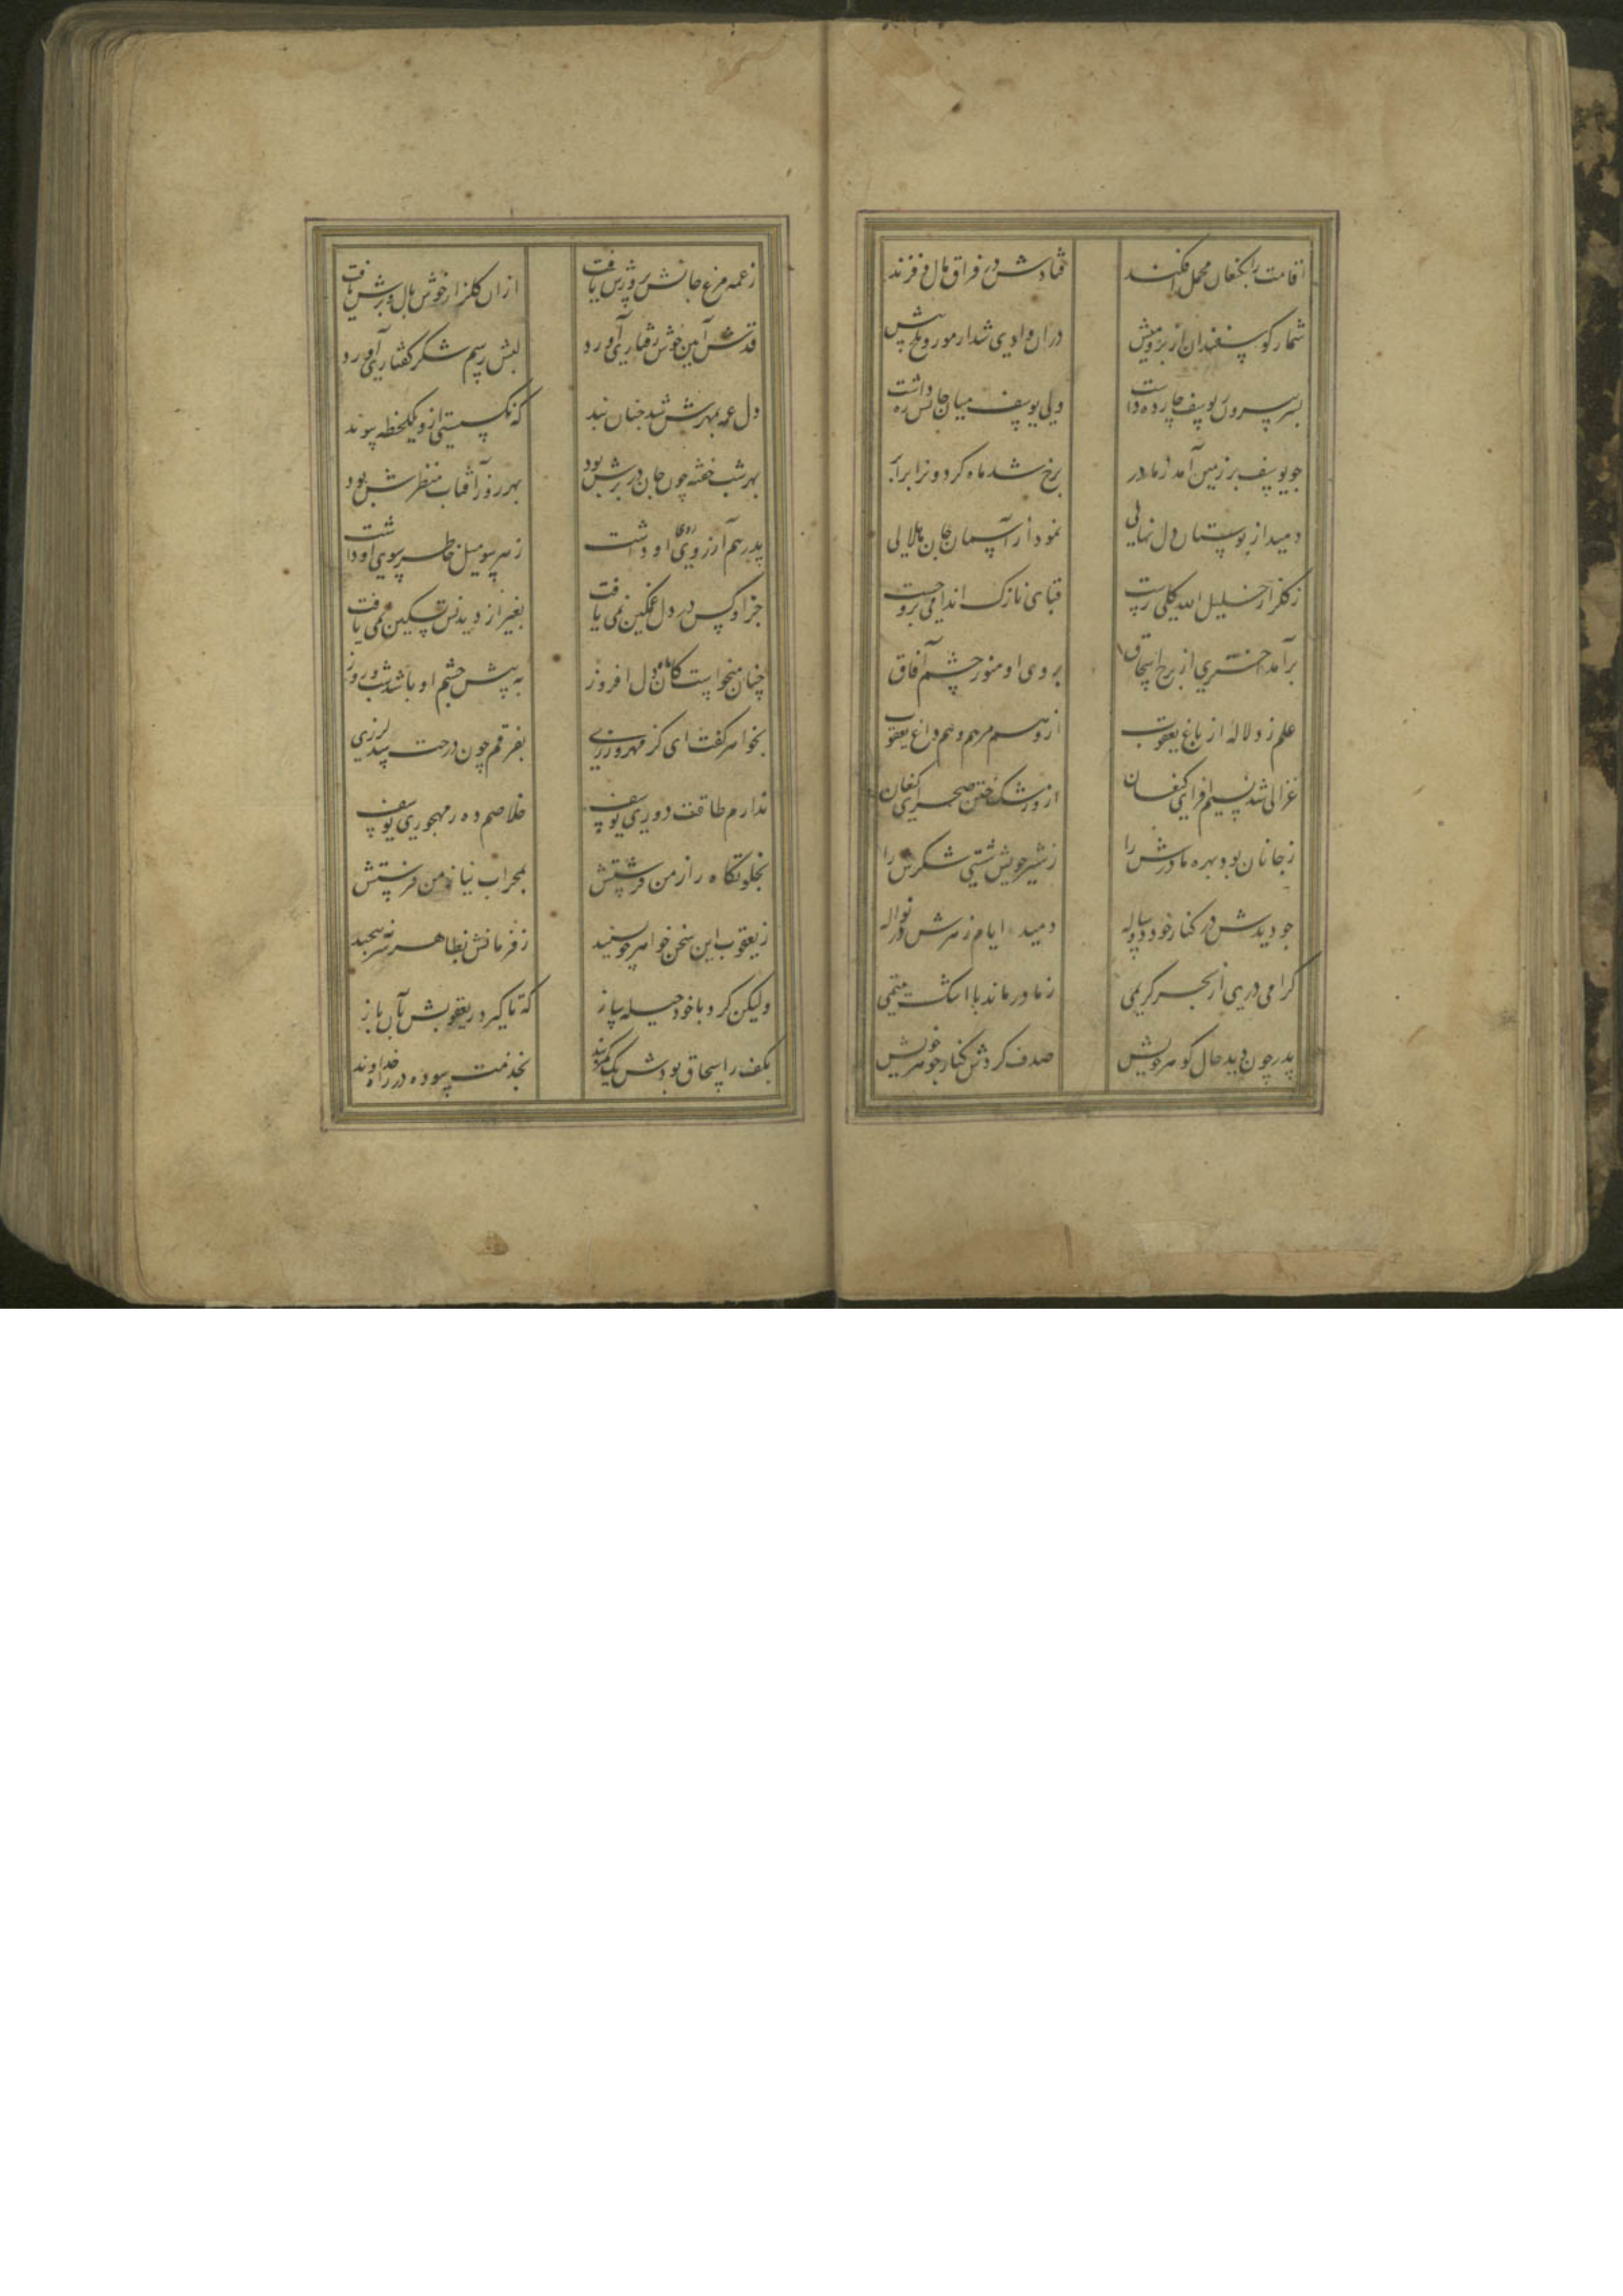 اقامت را بکنعان محمل افکند
فتادش در فراق مال و فرزند
شمار کوسفندان از بز و میش
در آن وادی شد از مور و ملخ بیش
پسر بیرون ز یوسف یازده داشت
ولی یوسف میان جانش ره داشت
چو یوسف بر زمین آمد ز مادر
برخ شد ماه کردونرا برابر
دمید از بوستان دل نهالی
نمود از آسمان جان هلالی
ز کلزار خلیل الله کلی رست
قبای نازک اندامی برو چست
برآمد اختری از برج اسحاق
بروی او منور چشم آفاق
علم زد لاله از باغ یعقوب
ازو هم مرهم و هم داغ یعقوب
غزالی شد نسیم افزای کنعان
ازو رشک ختن صحرای کنعان
ز جانان بود بهره مادرش را
ز شیر خویش شستی شکرش را
چو دیدش در کنار خود دو ساله
دمید ایام زهرش در نواله
کرامی دری از بحر کریمی
ز مادر ماند با اشک یتیمی
پدر چون دید حال کوهر خویش
صدف کردش کنار خواهر خویش
ز عمه مرغ جانش پرورش یافت
از ان کلزار خوش بال و پرش یافت
قدش آیین خوش رفتاری آورد
لبش رسم شکر کفتاری آورد
دل عمه بمهرش شد چنان بند
که نکسستی ازو یکلحظه پیوند
بهر شب خفته چون جان در برش بود
بهر روز آفتاب منظرش بود
پدر هم آرزوی روی او داشت
ز هر سو میل خاطر سوی او داشت
جز او کس در دل غمکین نمی یافت
بغیر از دیدنش تسکین نمی یافت
چنان میخواست کان ماه دل افروز
به پیش چشم او باشد شب و روز
بخواهر کفت ای کز مهرورزی
بفرقم چون درخت بید لرزی
ندارم طاقت دوری یوسف
خلاصم ده ز مهجوری یوسف
بخلوتکاه راز من فرستش
بمحراب نیاز من فرستش
ز یعقوب این سخن خواهر چو بشنید
ز فرمانش بظاهر سر نپیچید
ولیکن کرد با خود حیله ساز
که تا کیرد ز یعقوبش بآن باز
بکف ز اسحاق بودش یک کمربند
بخدمت سوده در راه خداوند